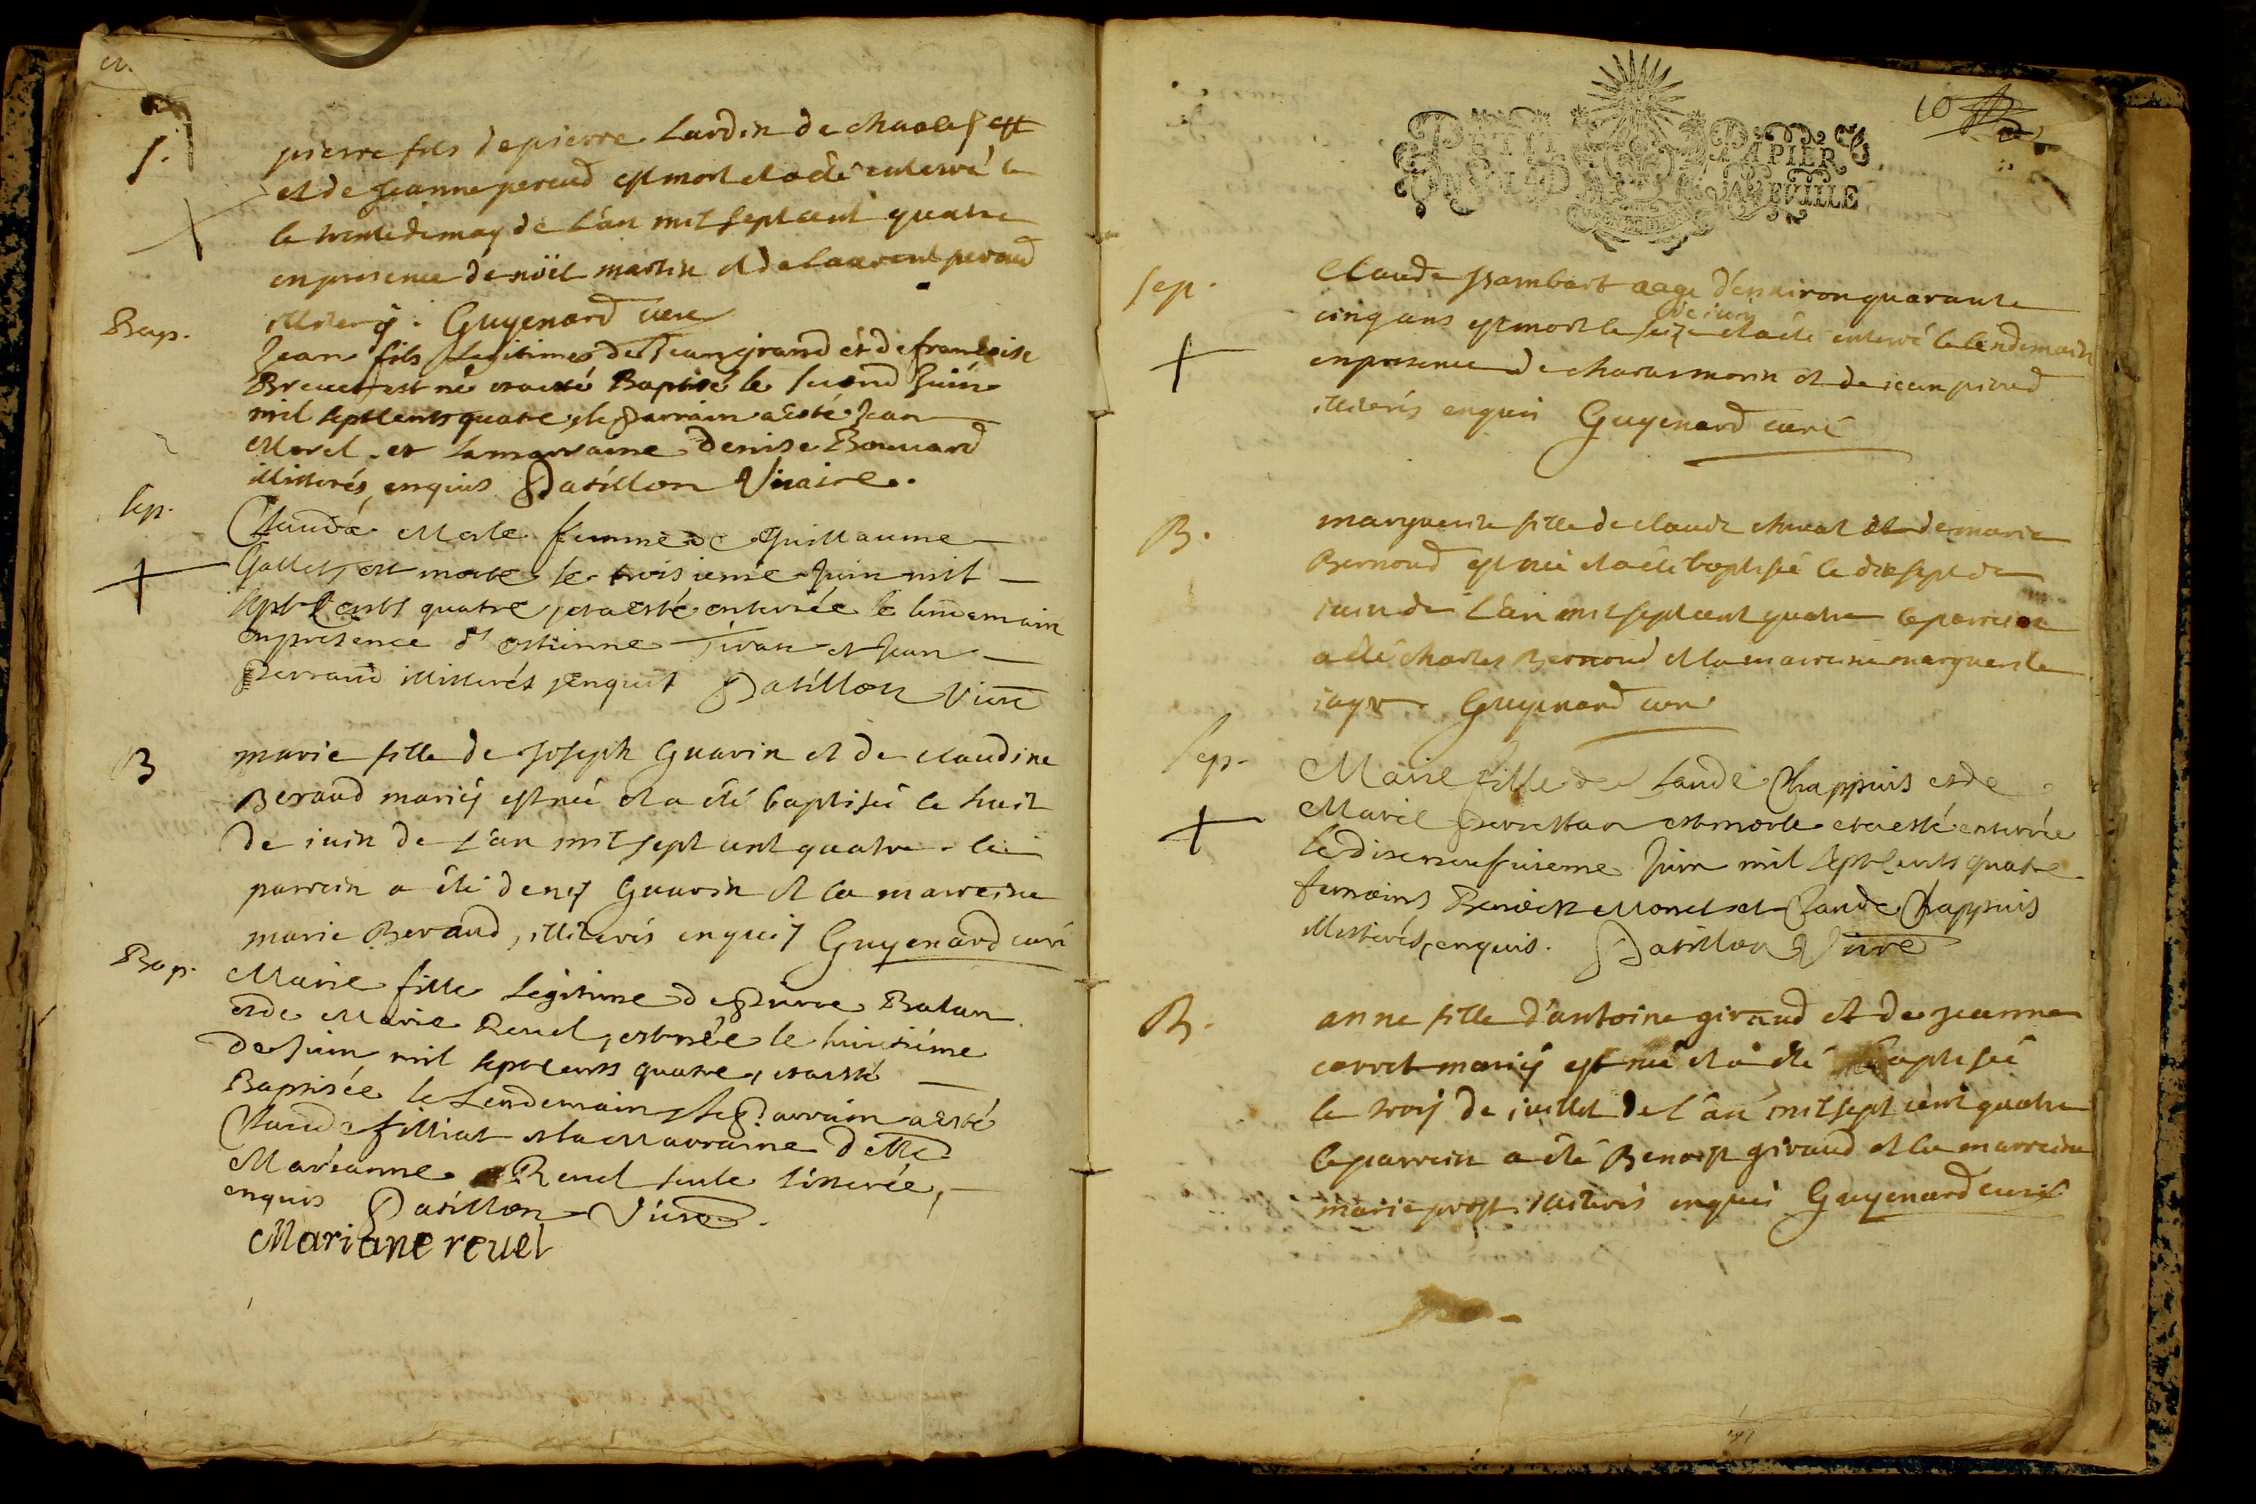 S.
pierre fils de pierre Lardin de
et de Jeanne peraud est mort et a été enterré le
le trente de may de L'an mil sept cent quatre
en presence de noël martin et de Laurent peraud
illiterés. Guyenard curé
Bap.
Jean fils Legitime de Jean girand et de francoise
Brevet est né et a esté Baptisé le second Juin
mil sept cents quatre, le Parrain a esté Jean
Morel et la marraine Denise Bouvard
illitterés enquis Datillon Vicaire.
Sep.
Claude Merle femme de Guillaume
Gallet, est morte le troisieme Juin mil
sept Cents quatre, et a esté enterrée le lendemain
en presence d'estienne Tivan et Jean
Perraud illitterés enquis Datillon Vicre
B
marie fille de Joseph Guarin et de claudine
Beraud mariés est née et a été baptisée le huit
de iuin de L'an mil sept cent quatre. le
parrein a été denis Guarin et la marreine
marie Beraud, illiterés enquis Guyenard curé
Bap.
Marie fille legitime de Pierre Balan
et de Marie Revel, est née le huitième
de Juin mil sept cents quatre, et a esté
Baptisée le Lendemain, le Parrain a esté
Claude filliat et la Marraine Delle
Marianne Revel seule littérée,
enquis Datillon Vicre.
Mariane revel
10
PETIT PAPIER
LA FEUILLE
Sep.
Claude Jambart aagé d'environ quarante
cinq ans est mort le seize de iuin et a été enterré le lendemain
en presence de morin et de iean piraud
illiterés enquis Guyenard curé
B.
marguerite fille de claude et de marie
Bernoud est née et a été baptisée le dixsept de
iuin de L'an mil sept cent quatre le parrein
a été charles Bernoud et la marreine marguerite
Guyenard curé
Sep.
Marie fille de Claude Chappuis et de
Marie est morte et a esté enterrée
le dixneufuieme Juin mil sept cents quatre
temoins Benoist Morel et Claude Chappuis
illitterés, enquis. Datillon Vicre
B.
anne fille d'antoine giraud et de Jeanne
corret mariés est née et a été baptisée
le trois de iuillet de L'an mil sept cent quatre
le parrein a été Benoist giraud et la marreine
marie prost illiterés enquis Guyenard curé